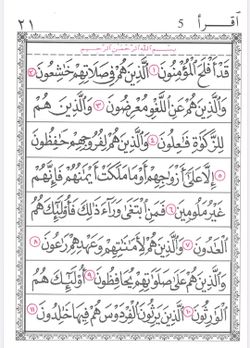 ٢١ 5 اقرأ
بِسْمِ ٱللَّهِ ٱلرَّحْمَٰنِ ٱلرَّحِيمِ
قَدْ أَفْلَحَ ٱلْمُؤْمِنُونَ ١ ٱلَّذِينَ هُمْ فِى صَلَاتِهِمْ خَٰشِعُونَ ٢
وَٱلَّذِينَ هُمْ عَنِ ٱللَّغْوِ مُعْرِضُونَ ٣ وَٱلَّذِينَ هُمْ
لِلزَّكَوٰةِ فَٰعِلُونَ ٤ وَٱلَّذِينَ هُمْ لِفُرُوجِهِمْ حَٰفِظُونَ
٥ إِلَّا عَلَىٰٓ أَزْوَٰجِهِمْ أَوْ مَا مَلَكَتْ أَيْمَٰنُهُمْ فَإِنَّهُمْ
غَيْرُ مَلُومِينَ ٦ فَمَنِ ٱبْتَغَىٰ وَرَآءَ ذَٰلِكَ فَأُو۟لَٰٓئِكَ هُمُ
ٱلْعَادُونَ ٧ وَٱلَّذِينَ هُمْ لِأَمَٰنَٰتِهِمْ وَعَهْدِهِمْ رَٰعُونَ ٨
وَٱلَّذِينَ هُمْ عَلَىٰ صَلَوَٰتِهِمْ يُحَافِظُونَ ٩ أُو۟لَٰٓئِكَ هُمُ
ٱلْوَٰرِثُونَ ١٠ ٱلَّذِينَ يَرِثُونَ ٱلْفِرْدَوْسَ هُمْ فِيهَا خَٰلِدُونَ ١١